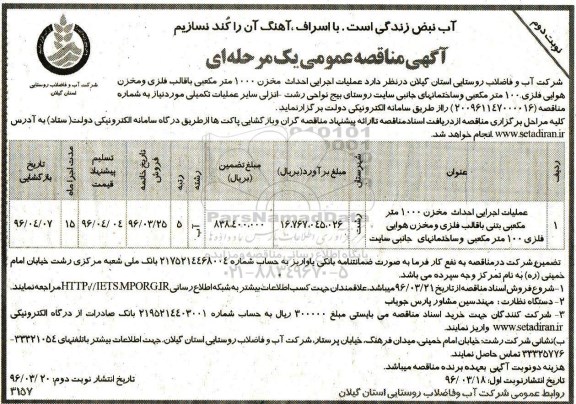 آب نبض زندگی است . با اسراف ،آهنگ آن را کُند نسازیم
نوبت دوم
آگهی مناقصه عمومی یک مرحله ای
شرکت آب و فاضلاب روستایی
استان گیلان
شرکت آب و فاضلاب روستایی استان گیلان درنظر دارد عملیات اجرایی احداث مخزن ۱۰۰۰ متر مکعبی باقالب فلزی ومخزن
هوایی فلزی ۱۰۰ متر مکعبی وساختمانهای جانبی سایت روستای بیج نواحی رشت -انزلی سایر عملیات تکمیلی موردنیاز به شماره
مناقصه (۲۰۰۹۶۱۱۴۷۰۰۰۰۱۶) رااز طریق سامانه الکترونیکی دولت برگزارنماید.
کلیه مراحل برگزاری مناقصه ازدریافت اسنادمناقصه تاارائه پیشنهاد مناقصه گران وبازگشایی پاکت ها ازطریق درگاه سامانه الکترونیکی دولت( ستاد) به آدرس
www.setadiran.ir انجام خواهد شد.
ردیف عنوان شهرستان مبلغ برآورد(بریال) مبلغ تضمین (بریال) رشته رتبه تاریخ خاتمه فروش مدت اجرا ماه تسلیم پیشنهاد قیمت تاریخ بازگشایی
۱ عملیات اجرایی احداث مخزن ۱۰۰۰ متر مکعبی بتنی باقالب فلزی ومخزن هوایی فلزی ۱۰۰ متر مکعبی وساختمانهای جانبی سایت رشت ۱۶،۷۶۷،۰۴۵،۰۲۶ ۸۳۸،۴۰۰،۰۰۰ آب ۵ ۹۶/۰۳/۲۵ ۱۵ ۹۶/۰۴/۰۴ ۹۶/۰۴/۰۷
تضمین:شرکت درمناقصه به نفع کار فرما به صورت ضمانتنامه بانکی یاواریز به حساب شماره ۲۱۷۵۲۱۴۴۶۸۰۰۴ بانک ملی شعبه مرکزی رشت خیابان امام
خمینی (ره) به نام تمرکز وجه سپرده می باشد.
۱-شروع فروش اسناد مناقصه ازتاریخ ۹۶/۰۳/۲۱ میباشد.علاقمندان جهت کسب اطلاعات بیشتر به شبکه اطلاع رسانی HTTP//IETS.MPORG.IR مراجعه نمایند.
۲- دستگاه نظارت : مهندسین مشاور پارس جویاب
۳- شرکت کنندگان جهت خرید اسناد مناقصه می بایستی مبلغ ۳۰۰۰۰۰ ریال به حساب شماره ۲۱۹۵۲۱۴۴۰۳۰۰۱ بانک صادرات از درگاه الکترونیکی
www.setadiran.ir واریز نمایند.
ب)نشانی شرکت رشت: خیابان امام خمینی، میدان فرهنگ، خیابان پرستار، شرکت آب و فاضلاب روستایی استان گیلان .جهت اطلاعات بیشتر باتلفنهای ۳۳۳۲۱۰۵۴-
۳۳۳۲۵۷۷۶ تماس حاصل نمایند.
هزینه دونوبت آگهی بعهده برنده مناقصه میباشد.
تاریخ انتشارنوبت اول: ۹۶/۰۳/۱۸ تاریخ انتشار نوبت دوم: ۹۶/۰۳/۲۰
روابط عمومی شرکت آب وفاضلاب روستایی استان گیلان ۳۱۵۷
ParsNamadData
۰۲۱-۸۸۳۴۹۶۷۰-۵